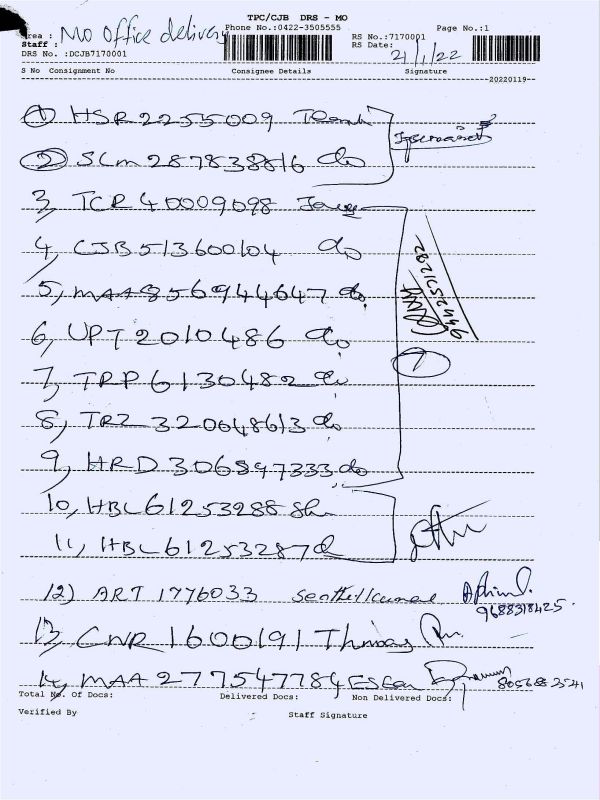 TPC/CJB DRS - MO
Area : MO Office delivery Phone No.:0422-3505555 Page No.:1
Staff : RS No.:7170001
DRS No. :DCJB7170001 RS Date: 21/1/22
S No Consignment No Consignee Details Signature
20220119
1 HSR 2255009
2 SLM 287838816 do
3, TCR 40009098
4, CJB 513600104 do
5, MAA 856944647 do
9442531282
6, UPT 2010486 do
7
7, TRP 6130482 do
8, TRZ 320648613 do
9, HRD 306897333 do
10, HBL 61253288
11, HBL 61253287
12) ART 1776033 Senthilkumar
9688318425
13, CNR 1600191 Thomas
14, MAA 277547784 ESSan
Total No. Of Docs: Delivered Docs: Non Delivered Docs:
Verified By Staff Signature